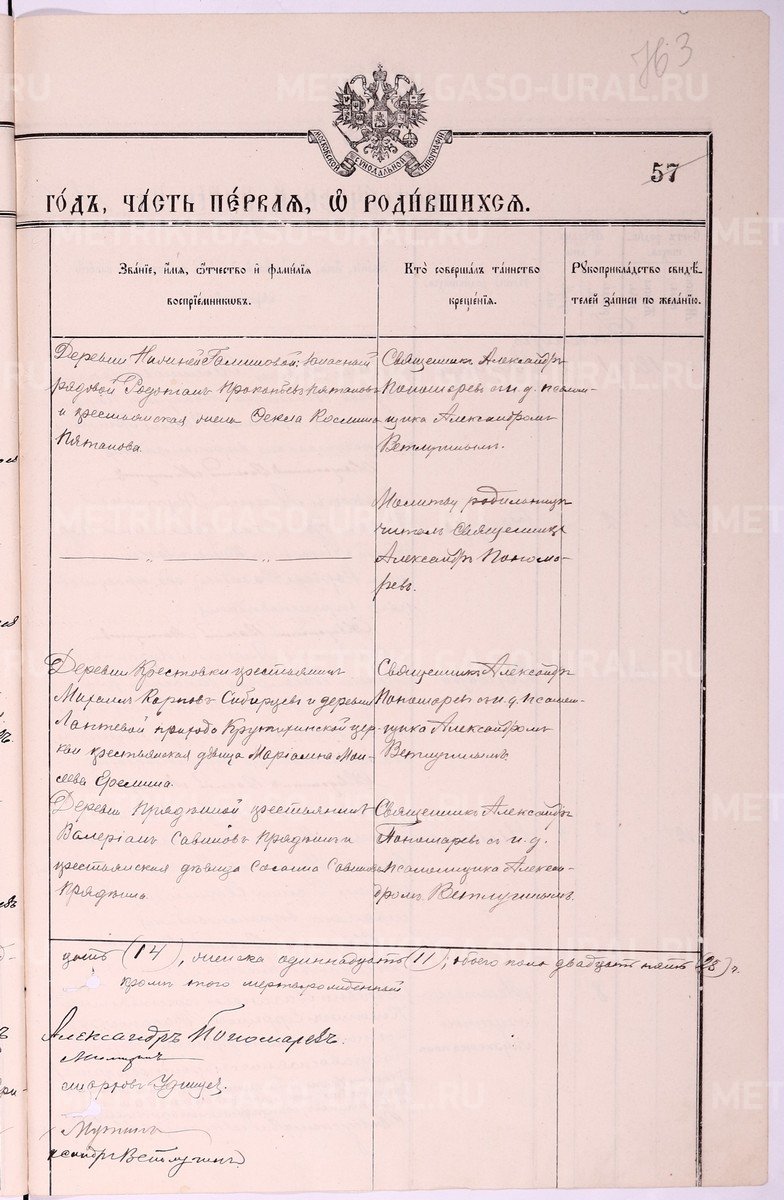 763
МОСКОВСКОЙ СѴНОДАЛЬНОЙ ТИПОГРАФІИ
57
ГОДЪ, ЧАСТЬ ПЕРВАЯ, Ѡ РОДИВШИХСЯ.
Званіе, имя, ѻтчество и фамилія
воспріемниковъ.
Кто совершалъ таинство
крещенія.
Рукоприкладство свидѣ-
телей записи по желанію.
Деревни Галишовой; запасный
рядовой Прокопьевъ Пятановъ
и крестьянская жена Фекла Космина
Пятанова.
Священникъ Александръ
Пономаревъ съ и. д. псалом-
щика Александромъ
Ветлугинымъ.
Молитву родильницѣ
читалъ Священникъ
Александръ Понома-
ревъ.
Деревни Крестовки крестьянинъ
Михаилъ Карповъ Сибирцевъ и деревни
Лаптевой прихода Крутихинской цер-
кви крестьянская дѣвица Маріамна Мои-
сеева Еремина.
Священникъ Александръ
Пономаревъ съ и. д. псалом-
щика Александромъ
Ветлугинымъ.
Деревни крестьянинъ
Валеріанъ Савиновъ и
крестьянская дѣвица Савинова
Священникъ Александръ
Пономаревъ съ и. д.
псаломщика Алексан-
дромъ Ветлугинымъ.
цать (14), женска одиннадцать (11), обоего пола двадцать пять (25) ч.
кромѣ того мертворожденный
Александръ Пономаревъ.
ксандръ Ветлугинъ
METRIKI.GASO-URAL.RU